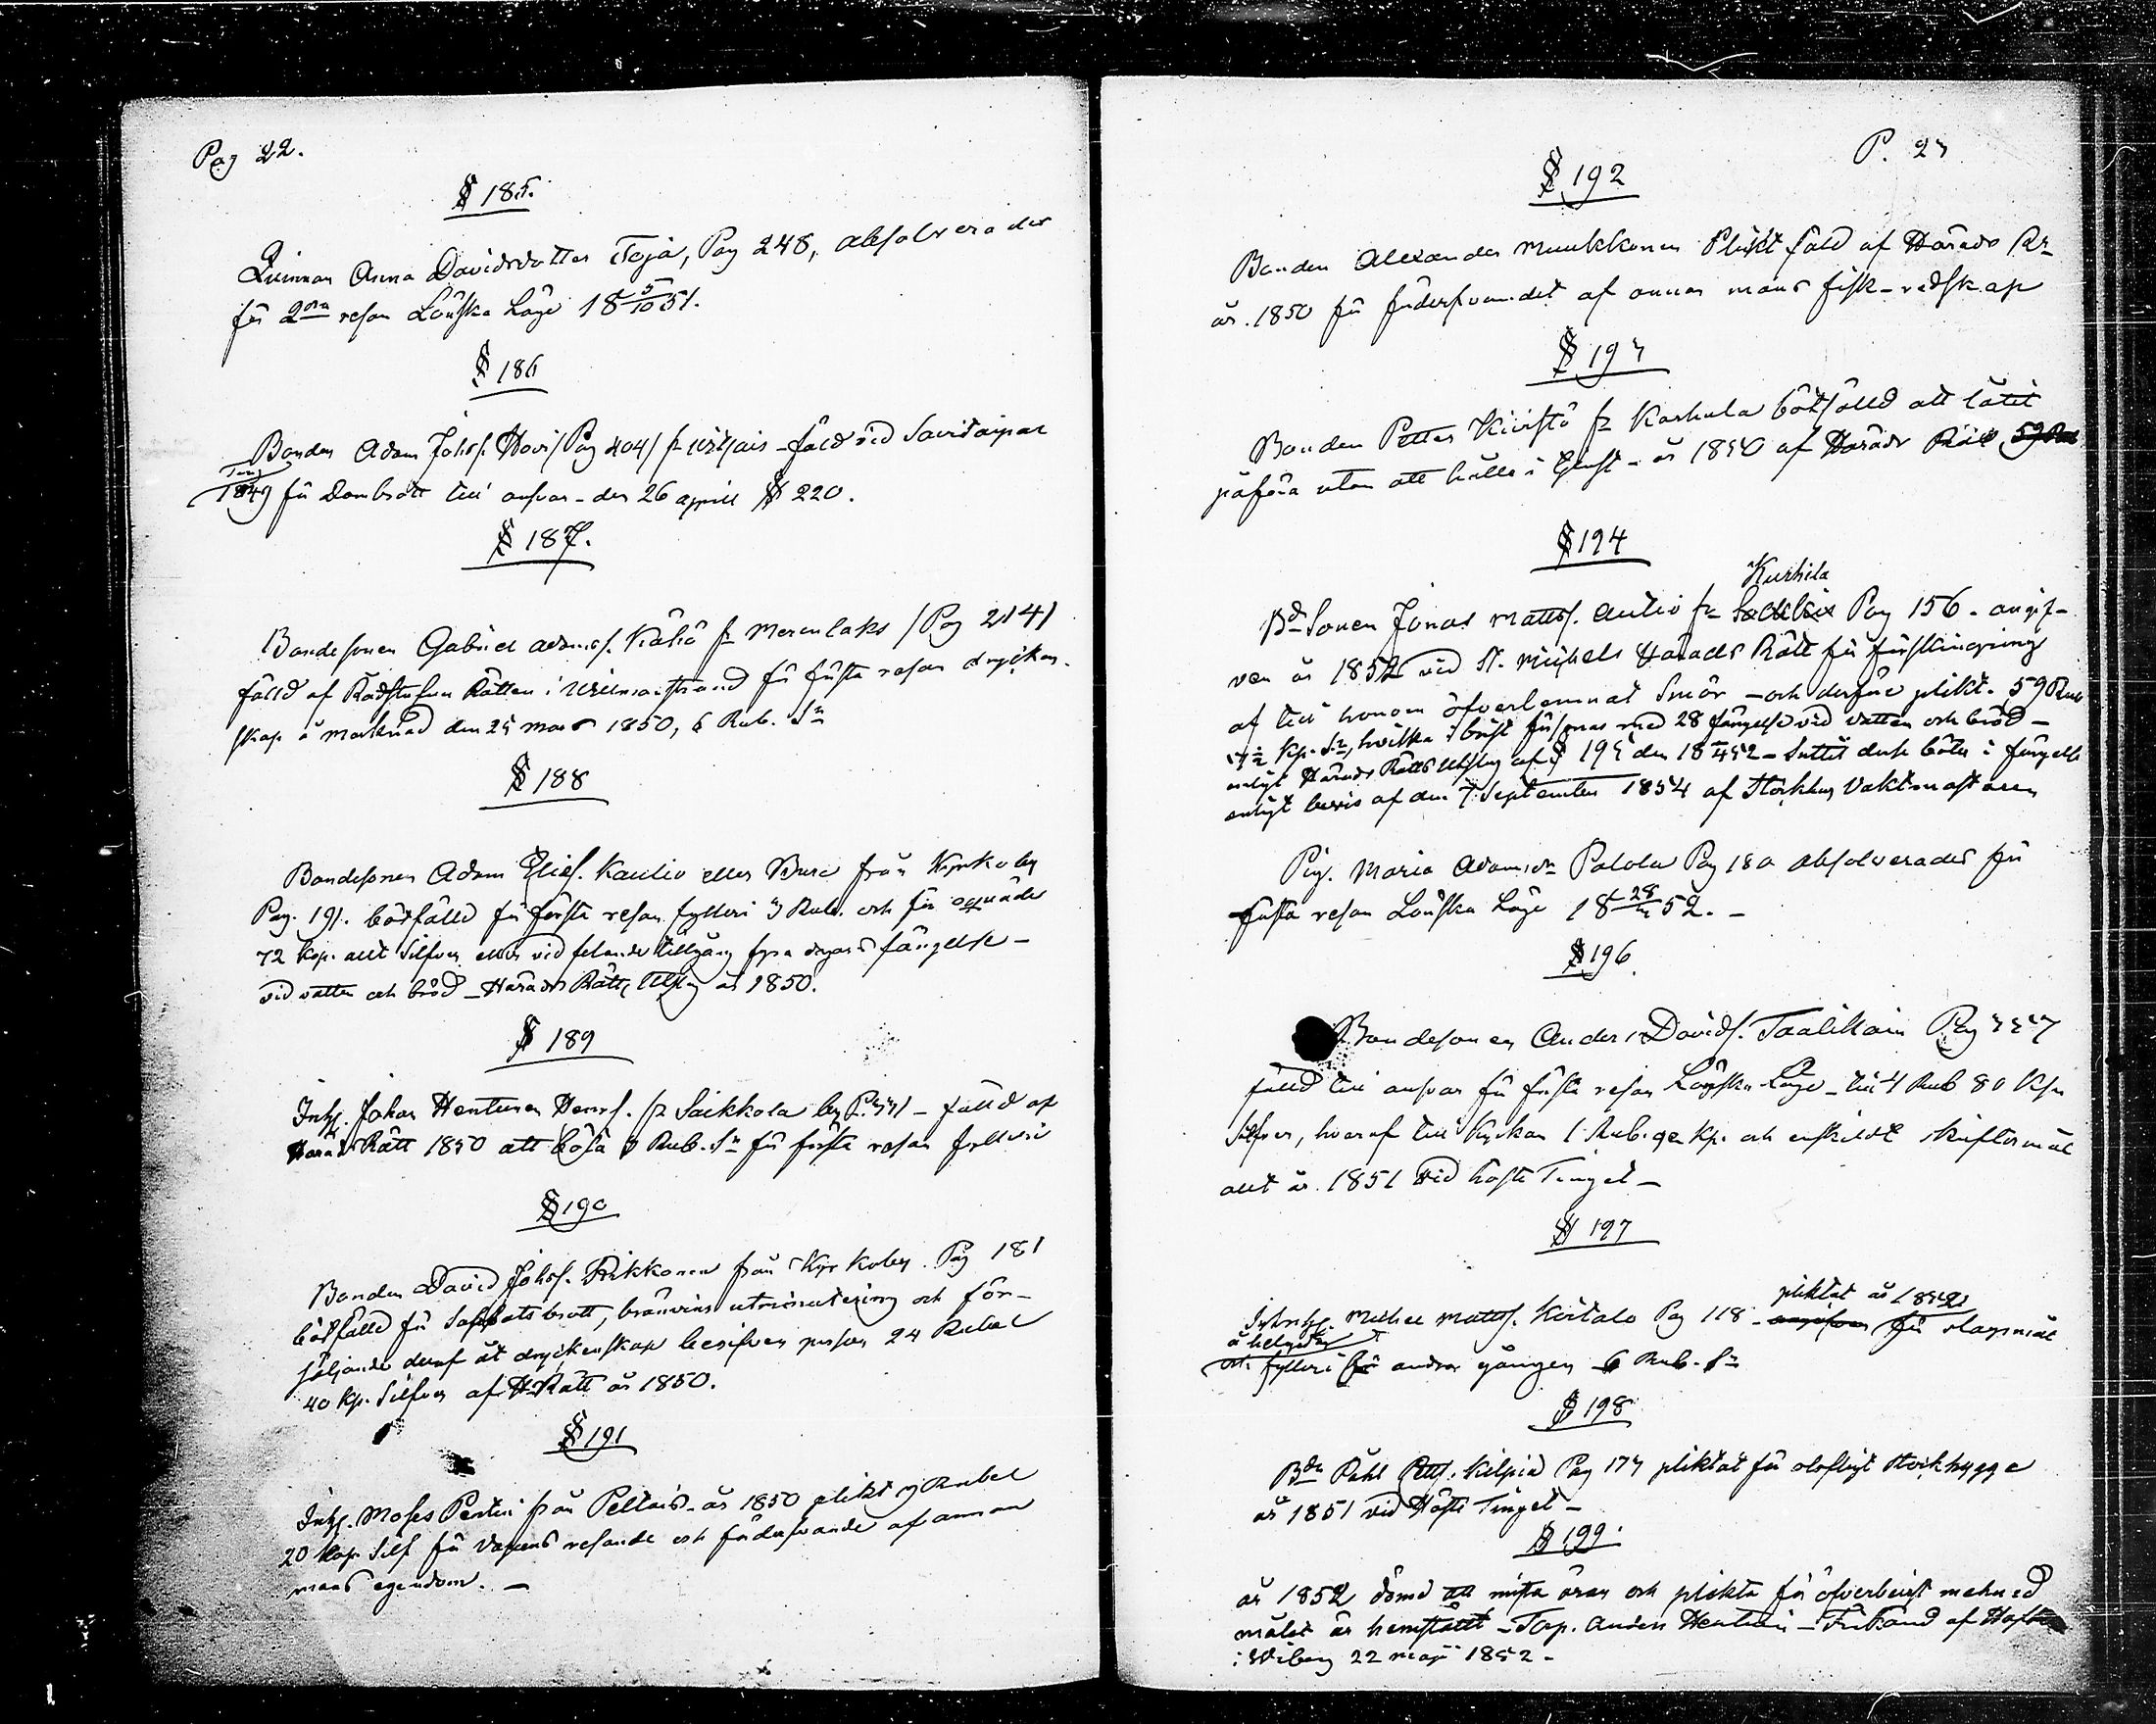 Pag 22.
§ 185.
Quinnan Anna Davidsdotter Toja, Pag 248, absolverades
för 2dra resan Lönska Läge 18 5/10 51.
§ 186
Bonden Adam Johsf. Hovi / Pag 404 / fr fäld vid Savitaipal
Ting 1849 för till ansvar - den 26 april § 220.
§ 187.
Bondesonen Gabriel Adamsf. Kähö fr Merenlaks / Pag 214 /
fälld af Rådstufvu Rätten i Wilmanstrand för första resan drycken-
skap å marknad den mars 1850, 6 Rub. Sr
§ 188
Bondesonen Adam Eliesf. Kautio eller från Kyrkoby
Pag. 191. bötfälld för första resan fylleri 3 Rub. och för oqvädes
72 kop. allt Silfver eller vid felande tillgång fyra dagars fängelse -
vid vatten och bröd - Härads Rätts Utslag år 1850.
§ 189
Inhs. Johan Hentunen Henrsf. fr Saikkola by - fälld af
Härads Rätt 1850 att böta 3 Rub. Sr för första resan fylleri
§ 190
Bonden David Johsf. från Kyrkoby. Pag 181
bötfälld för Sabbatsbrott, bränvins utminutering och för-
säljande deraf åt dryckenskap personer 24 Rubel
40 Kp. Silfver af H. Rätt år 1850.
§ 191
Inhs. Moses Pentti från Peltois - år 1850 plikt 7 Rubel
20 Kop. Silf för resande och förderfvande af annan
mans egendom. -
P. 23
§ 192
Bonden Alexander Muukkonen Plikt fäld af Härads Rr
år. 1850 för förderfvandet af annan mans fisk-redskap
§ 193
Bonden Petter Kiiristö fr Karhula bötfälld att låtit
påföra utan att hålla i år 1850 af Härads Rätt
§ 194
Kurhila
Bd Sonen Jonas Mattsf. Autio fr Pag 156 - angif-
ven år 1852 vid St. Michels Härads Rätt för förskingring
af till honom öfverlemnat Smör - och derföre plikt. 59 Rub
Kp. Sr, hvilka i brist försonas med 28 fängelse vid vatten och bröd -
enligt Härads Rätts Utslag af § 195 den - Suttit dessa böter i fängelse
enligt bevis af den 7 September 1854 af Vaktmästaren
Pig. Maria Adamsdr Palola Pag 180 absolverades för
första resan Lönska Läge 18 28/ 52. -
§ 196.
Bondesonen Anders Davidsf. Taalikain Pag
fälld till ansvar för första resan Lönska Läge - till 4 Rub 80 Kp
Silfver, hvaraf till Kyrkan 1 Rub. 92 Kp. och enskildt skriftermål
allt år 1851 vid höste Tinget -
§ 197
pliktat år 1852
Inhs. Michel Mattsf. Koitalo Pag 118 - angifven för slagsmål
å helgedag
och fylleri för andra gången 6 Rub. Sr
§ 198
Bdn Påhl Pettf. Kilpiä Pag 173 pliktat för olofligt
år 1851 vid Höste Tinget -
§ 199.
år 1852 dömd att mista äran och plikta för öfverbevist mehned
målet är hemstäldt - Torp. Anders Hentunen - af Hofrätten
i Wiborg 22 maji 1852 -